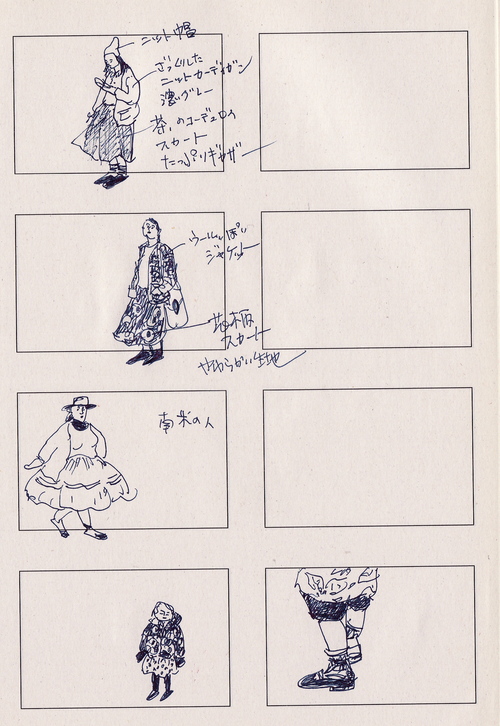 ニット帽
ざっくりした
ニットカーディガン
濃いグレー
茶、のコーデュロイ
スカート
たっぷりギャザー
ウールっぽい
ジャケット
花柄
スカート
やわらかい生地
南米の人